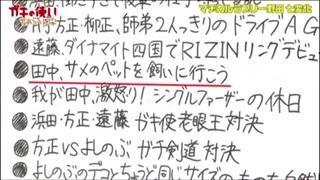 ガキの使い
マヂカルラブリー野田 七変化
月亭方正、柳正、師弟2人っきりのドライブ
遠藤、ダイナマイト四国でRIZINリングデビュ
田中、サメのペットを飼いに行こう
我が田中、激怒り!シングルファーザーの休日
浜田・方正・遠藤 ガキ使老眼王対決
方正VSよしのぶ ガチ剣道対決
よしのぶのデコとちょうど同じサイズのもの